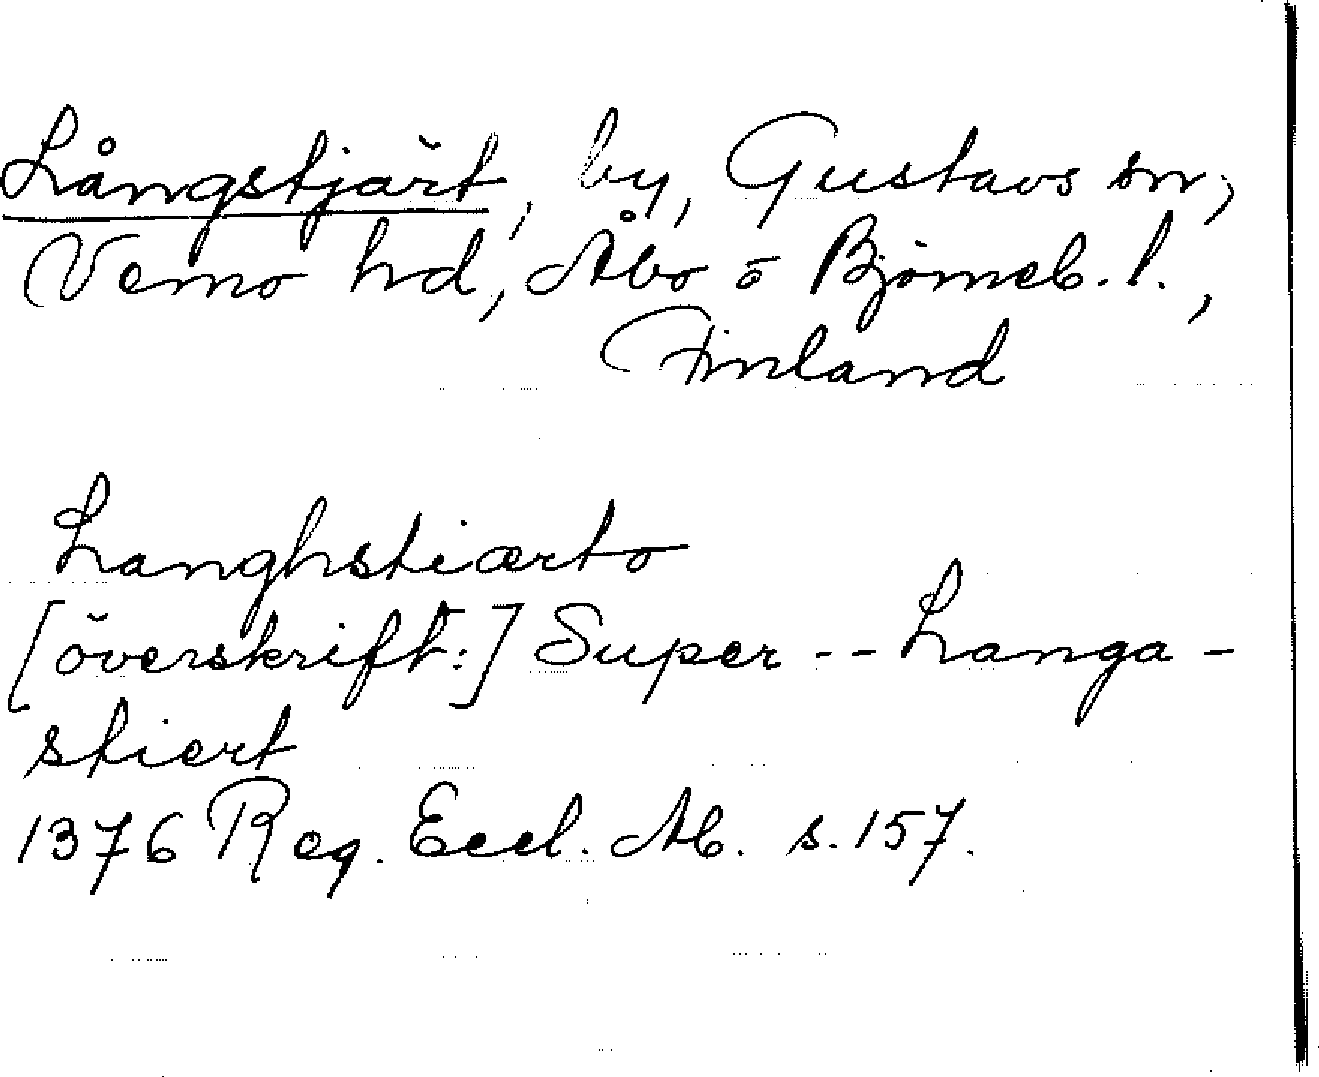 Långstjärt, by, Gustavs sn,
Vemo hd, Åbo o Björneb. l.,
Finland
Langhstiærto
[överskrift:] Super -- Langa-
stiert
1376 Reg. Eccl. Ab. s. 157.